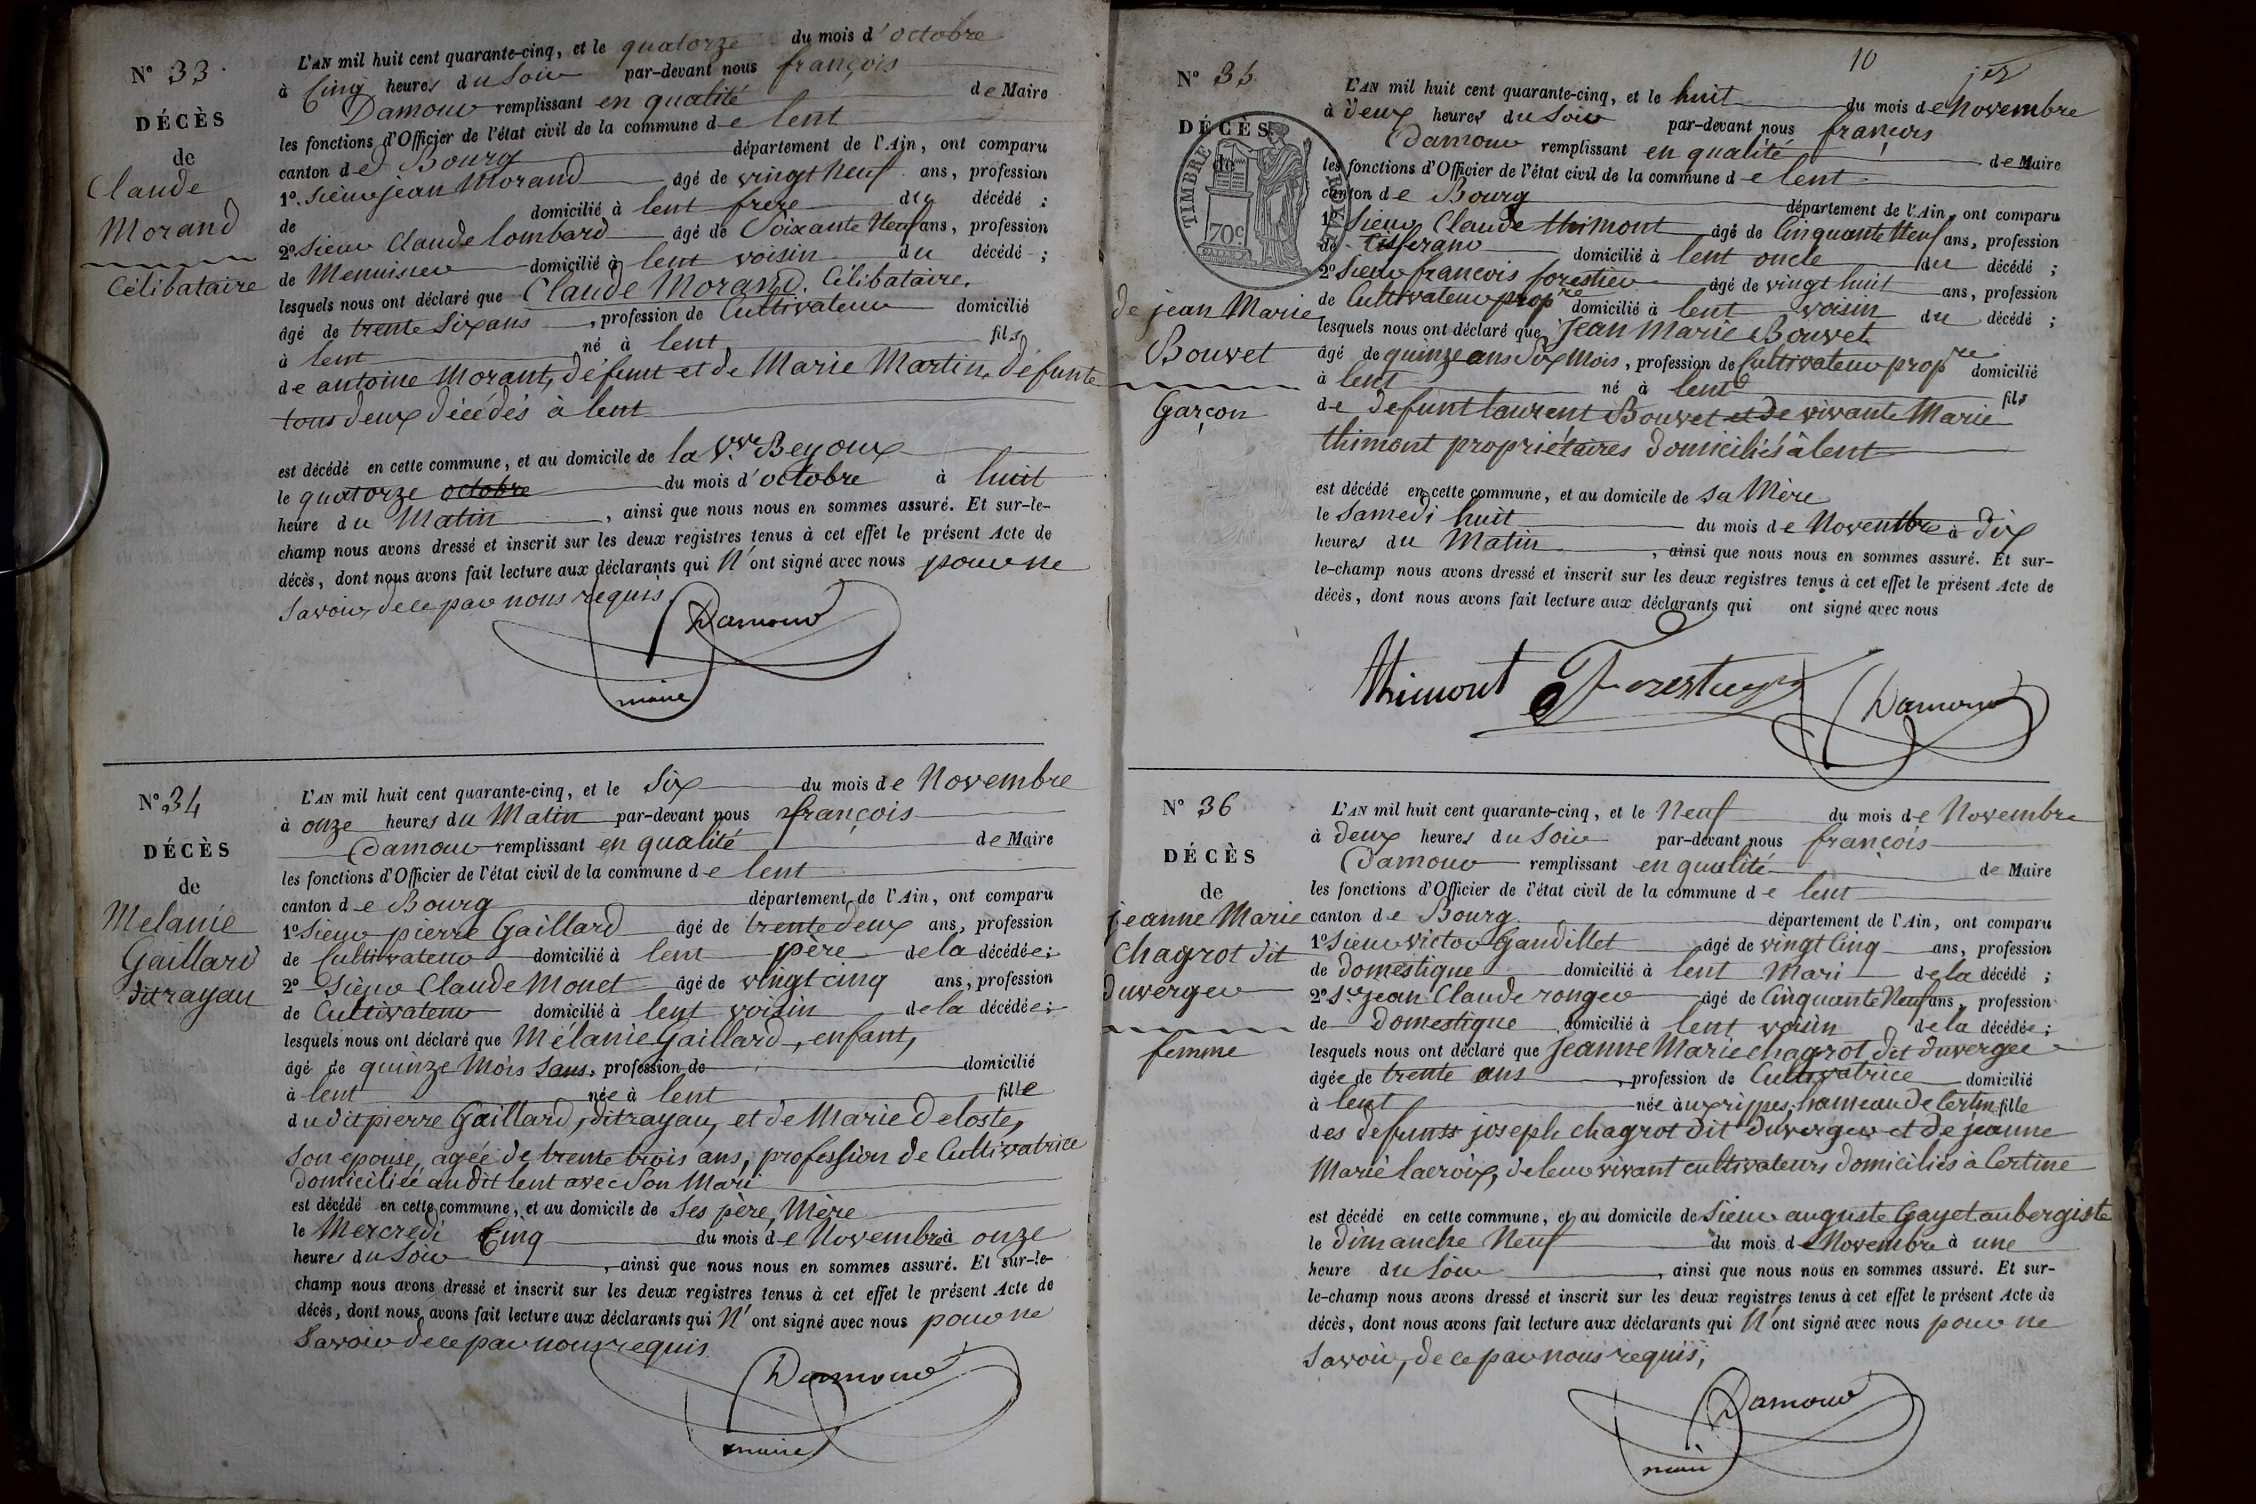 N° 33
DÉCÈS
de
Claude
Morand
Célibataire
L'AN mil huit cent quarante-cinq, et le quatorze du mois d'octobre
à Cinq heures du Soir par-devant nous françois
Damour remplissant en qualité de Maire
les fonctions d'Officier de l'état civil de la commune de lent
canton de Bourg département de l'Ain, ont comparu
1° Sieur jean Morand âgé de vingt Neuf ans, profession
de domicilié à lent frere du décédé ;
2° Sieur Claude lombard âgé de Soixante Neuf ans, profession
de Menuisier domicilié à lent voisin du décédé ;
lesquels nous ont déclaré que Claude Morand. Célibataire,
âgé de trente Six ans, profession de Cultivateur domicilié
à lent né à lent fils
de antoine Morant, défunt et de Marie Martin, défunte
tous deux décédés à lent
est décédé en cette commune, et au domicile de la Vve Beyoux
le quatorze octobre du mois d'octobre à huit
heure du Matin, ainsi que nous nous en sommes assuré. Et sur-le-
champ nous avons dressé et inscrit sur les deux registres tenus à cet effet le présent Acte de
décès, dont nous avons fait lecture aux déclarants qui N'ont signé avec nous pour ne
Savoir, de ce par nous requis
Damour
maire
N° 34
DÉCÈS
de
Melanie
Gaillard
dit rayau
L'AN mil huit cent quarante-cinq, et le Six du mois de Novembre
à onze heures du Matin par-devant nous françois
Damour remplissant en qualité de Maire
les fonctions d'Officier de l'état civil de la commune de lent
canton de Bourg département de l'Ain, ont comparu
1° Sieur pierre Gaillard âgé de trente deux ans, profession
de Cultivateur domicilié à lent père de la décédée ;
2° Sieur Claude Monet âgé de vingt cinq ans, profession
de Cultivateur domicilié à lent voisin de la décédée ;
lesquels nous ont déclaré que Mélanie Gaillard, enfant,
âgé de quinze Mois Sans, profession de domicilié
à lent née à lent fille
du dit pierre Gaillard, dit rayau, et de Marie Deloste,
Son epouse, agée de trente trois ans, profession de Cultivatrice
domiciliée au dit lent avec Son Mari
est décédé en cette commune, et au domicile de Ses père, Mère
le Mercredi Cinq du mois de Novembre à onze
heures du Soir, ainsi que nous nous en sommes assuré. Et sur-le-
champ nous avons dressé et inscrit sur les deux registres tenus à cet effet le présent Acte de
décès, dont nous avons fait lecture aux déclarants qui N'ont signé avec nous pour ne
Savoir de ce par nous requis
Damour
maire
10
N° 35
DÉCÈS
de
TIMBRE ROYAL
70c
de jean Marie
Bouvet
Garçon
L'AN mil huit cent quarante-cinq, et le huit du mois de Novembre
à deux heures du Soir par-devant nous françois
Damour remplissant en qualité de Maire
les fonctions d'Officier de l'état civil de la commune de lent
canton de Bourg département de l'Ain, ont comparu
1° Sieur Claude thimont âgé de Cinquante Neuf ans, profession
de Tisserand domicilié à lent oncle du décédé ;
2° Sieur francois forestier âgé de vingt huit ans, profession
de Cultivateur propre domicilié à lent voisin du décédé ;
lesquels nous ont déclaré que Jean Marie Bouvet
âgé de quinze ans dix Mois, profession de Cultivateur propre domicilié
à lent né à lent fils
de défunt laurent Bouvet et de vivante Marie
thimont propriétaires domiciliés à lent
est décédé en cette commune, et au domicile de sa Mère
le Samedi huit du mois de Novembre à dix
heures du Matin, ainsi que nous nous en sommes assuré. Et sur-
le-champ nous avons dressé et inscrit sur les deux registres tenus à cet effet le présent Acte de
décès, dont nous avons fait lecture aux déclarants qui ont signé avec nous
thimont Forestier Damour
N° 36
DÉCÈS
de
jeanne Marie
chagrot dit
duverger
femme
L'AN mil huit cent quarante-cinq, et le Neuf du mois de Novembre
à deux heures du Soir par-devant nous françois
Damour remplissant en qualité de Maire
les fonctions d'Officier de l'état civil de la commune de lent
canton de Bourg département de l'Ain, ont comparu
1° Sieur victor Gaudillet âgé de vingt Cinq ans, profession
de domestique domicilié à lent Mari de la décédé ;
2° Sr jean Claude ronger âgé de Cinquante Neuf ans, profession
de Domestique domicilié à lent voisin de la décédée ;
lesquels nous ont déclaré que Jeanne Marie chagrot dit duverger
âgée de trente ans, profession de Cultivatrice domicilié
à lent née aux rippes, hameau de Certine fille
des defunts joseph chagrot dit duverger et de jeanne
Marie lacroix, de leur vivant cultivateurs domiciliés à Certine
est décédé en cette commune, et au domicile de Sieur auguste Gayet aubergiste
le dimanche Neuf du mois de Novembre à une
heure du Soir, ainsi que nous nous en sommes assuré. Et sur-
le-champ nous avons dressé et inscrit sur les deux registres tenus à cet effet le présent Acte de
décès, dont nous avons fait lecture aux déclarants qui N'ont signé avec nous pour ne
Savoir, de ce par nous requis,
Damour
maire